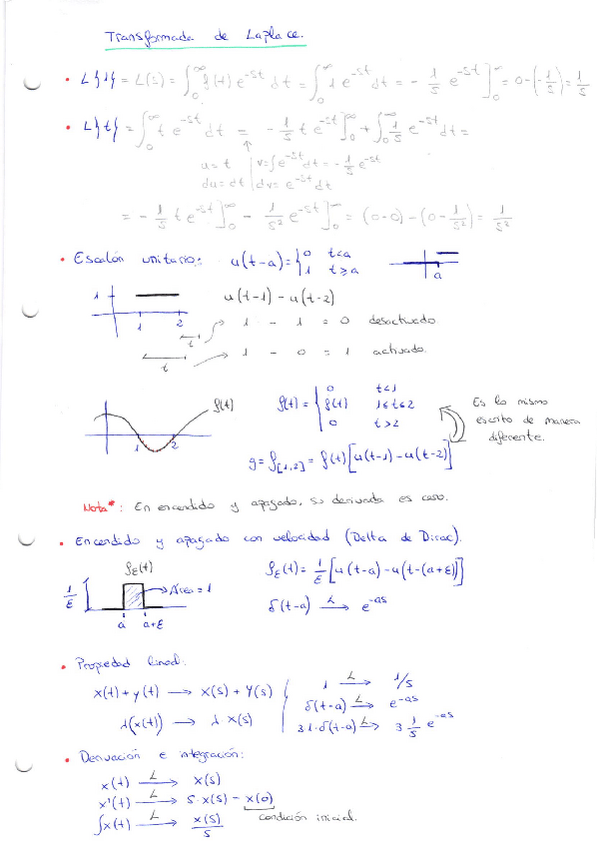 Transformada de Laplace.
• L{1} = L(s) = ∫₀^∞ f(t) e^-st dt = ∫₀^∞ 1 e^-st dt = - 1/s e^-st ]₀^∞ = 0-(-1/s) = 1/s
• L{t} = ∫₀^∞ t e^-st dt = - 1/s t e^-st ]₀^∞ + ∫₀^∞ 1/s e^-st dt =
u = t | v = ∫e^-st dt = - 1/s e^-st
du = dt | dv = e^-st dt
= - 1/s t e^-st ]₀^∞ - 1/s² e^-st ]₀^∞ = (0-0) - (0 - 1/s²) = 1/s²
• Escalón unitario: u(t-a) = { 0 t<a
1 t≥a
a
1
1 2
u(t-1) - u(t-2)
t
1 - 1 = 0 desactivado
t
1 - 0 = 1 activado.
f(t)
1 2
f(t) = { 0 t<1
f(t) 1≤t≤2
0 t>2
Es lo mismo
escrito de manera
diferente.
g = f[1,2] = f(t) [u(t-1) - u(t-2)]
Nota*: En encendido y apagado, su derivada es cero.
• Encendido y apagado con velocidad (Delta de Dirac).
fε(t)
1/ε
Área = 1
a a+ε
fε(t) = 1/ε [u(t-a) - u(t-(a+ε))]
δ(t-a) L→ e^-as
• Propiedad lineal:
x(t) + y(t) → X(s) + Y(s)
λ(x(t)) → λ X(s)
1 L→ 1/s
δ(t-a) L→ e^-as
3·1·δ(t-a) L→ 3 1/s e^-as
• Derivación e integración:
x(t) L→ x(s)
x'(t) L→ s·x(s) - x(0)
condición inicial.
∫x(t) L→ x(s)/s